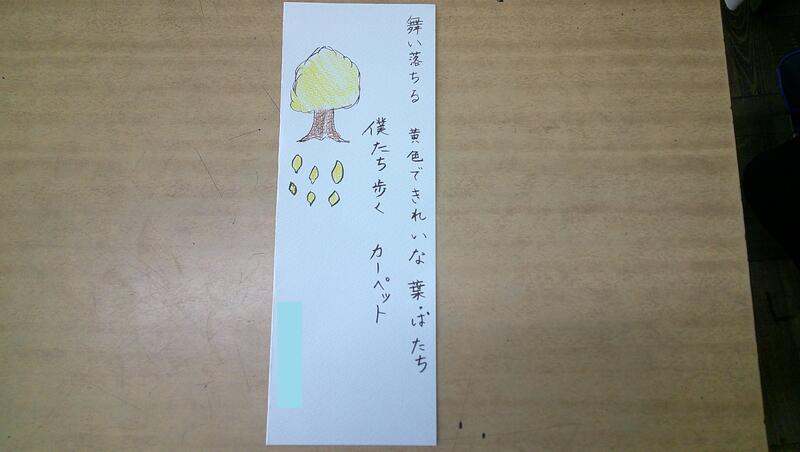 舞い落ちる 黄色できれいな 葉っぱたち
僕たち歩く カーペット